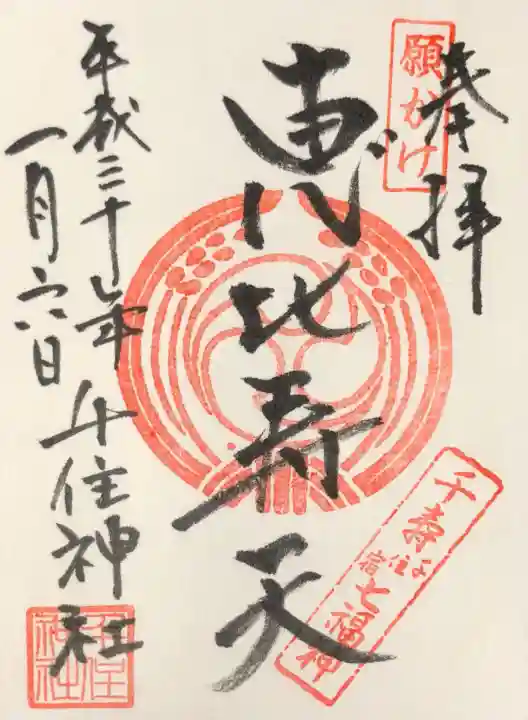 奉拝
願かけ
恵比寿天
千寿
千住宿
七福神
平成三十年
一月六日
千住神社
千住神社